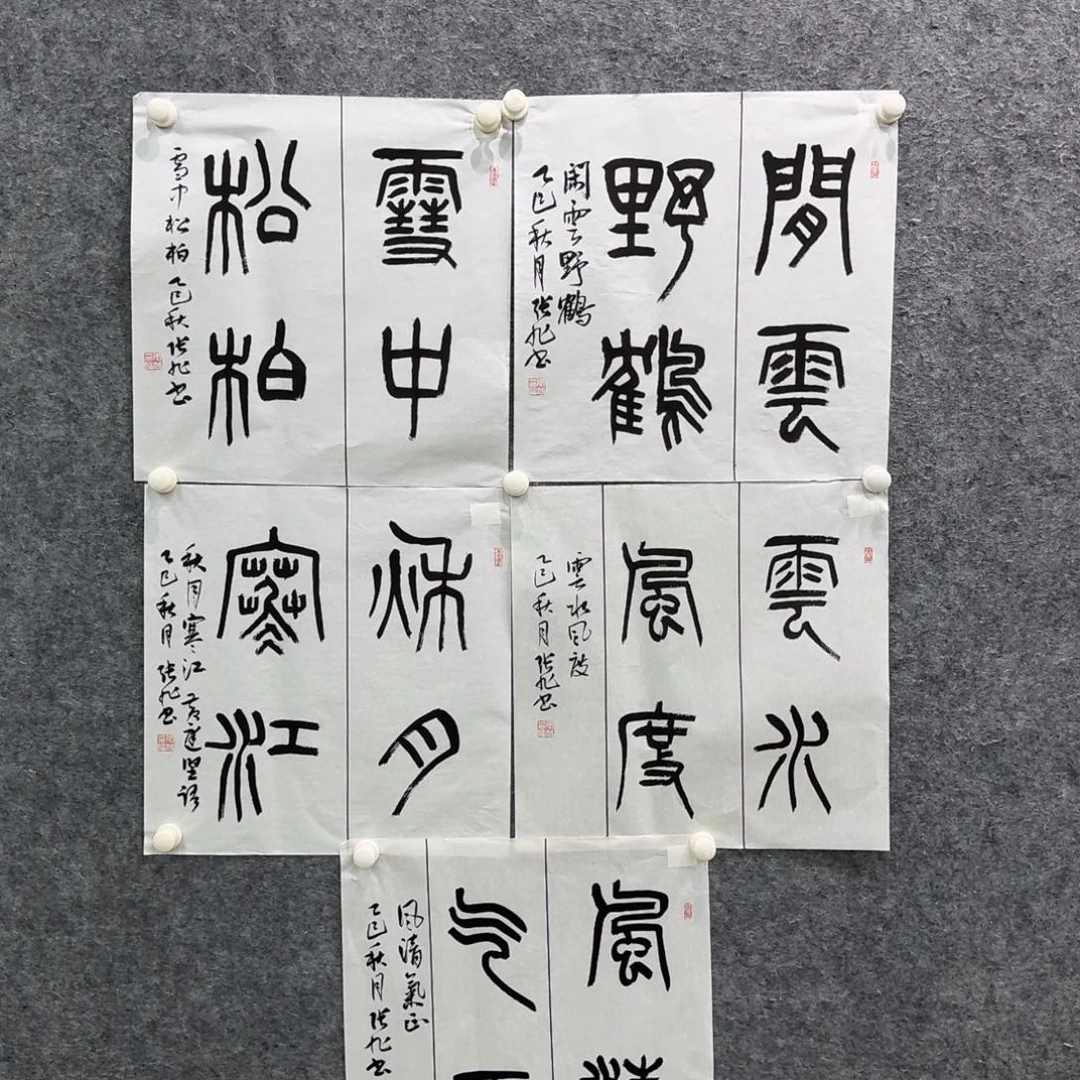 閒雲
野鶴
閑雲野鶴
乙巳秋月張旭書
雪中
松柏
雪中松柏乙巳秋張旭書
雲水
風度
雲水風度
乙巳秋月張旭書
秋月
寒江
秋月寒江黃庭堅語
乙巳秋月張旭書
風
气
風清氣正
乙巳秋月張旭書